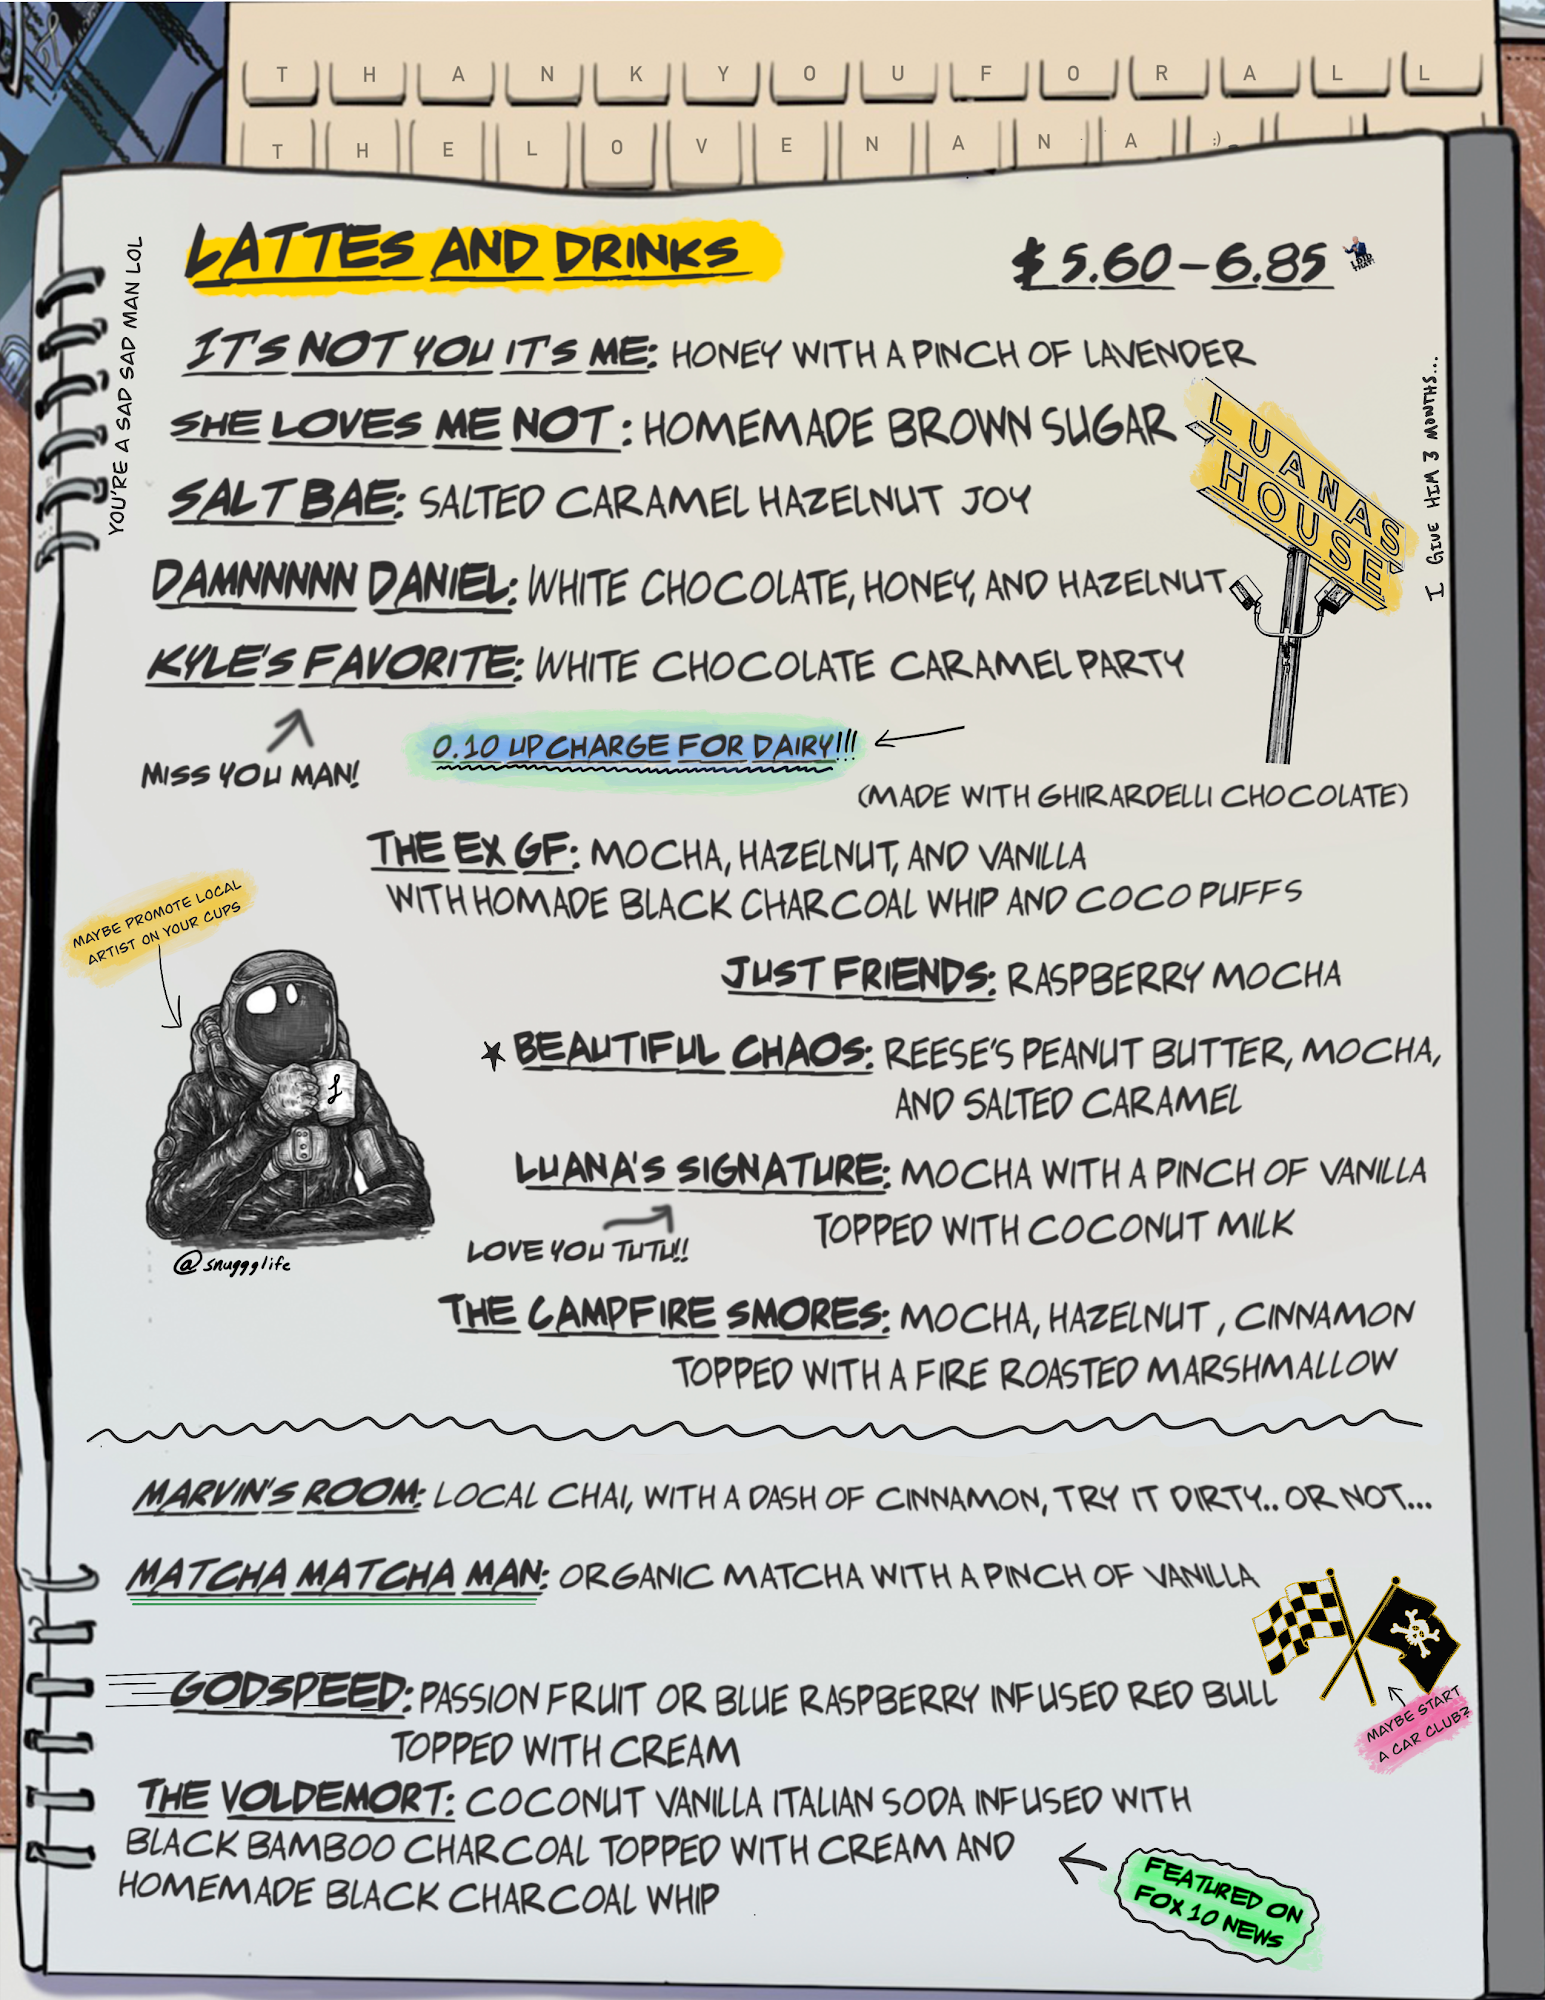 T H A N K Y O U F O R A L L
T H E L O V E N A N A :)
LATTES AND DRINKS
$ 5.60-6.85
I DID THAT!
YOU'RE A SAD SAD SAD MAN LOL
IT'S NOT YOU IT'S ME: HONEY WITH A PINCH OF LAVENDER
SHE LOVES ME NOT: HOMEMADE BROWN SUGAR
SALT BAE: SALTED CARAMEL HAZELNUT JOY
DAMNNNNN DANIEL: WHITE CHOCOLATE, HONEY, AND HAZELNUT
KYLE'S FAVORITE: WHITE CHOCOLATE CARAMEL PARTY
LUANAS
HOUSE
I GIVE HIM 3 MONTHS...
MISS YOU MAN!
0.10 UPCHARGE FOR DAIRY!!!
(MADE WITH GHIRARDELLI CHOCOLATE)
THE EX GF: MOCHA, HAZELNUT, AND VANILLA
WITH HOMADE BLACK CHARCOAL WHIP AND COCO PUFFS
MAYBE PROMOTE LOCAL
ARTIST ON YOUR CUPS
JUST FRIENDS: RASPBERRY MOCHA
BEAUTIFUL CHAOS: REESE'S PEANUT BUTTER, MOCHA,
AND SALTED CARAMEL
LUANA'S SIGNATURE: MOCHA WITH A PINCH OF VANILLA
TOPPED WITH COCONUT MILK
LOVE YOU TUTU!!
@snuggglife
THE CAMPFIRE SMORES: MOCHA, HAZELNUT, CINNAMON
TOPPED WITH A FIRE ROASTED MARSHMALLOW
MARVIN'S ROOM: LOCAL CHAI, WITH A DASH OF CINNAMON, TRY IT DIRTY.. OR NOT...
MATCHA MATCHA MAN: ORGANIC MATCHA WITH A PINCH OF VANILLA
GODSPEED: PASSION FRUIT OR BLUE RASPBERRY INFUSED RED BULL
TOPPED WITH CREAM
MAYBE START
A CAR CLUB?
THE VOLDEMORT: COCONUT VANILLA ITALIAN SODA INFUSED WITH
BLACK BAMBOO CHARCOAL TOPPED WITH CREAM AND
HOMEMADE BLACK CHARCOAL WHIP
FEATURED ON
FOX 10 NEWS